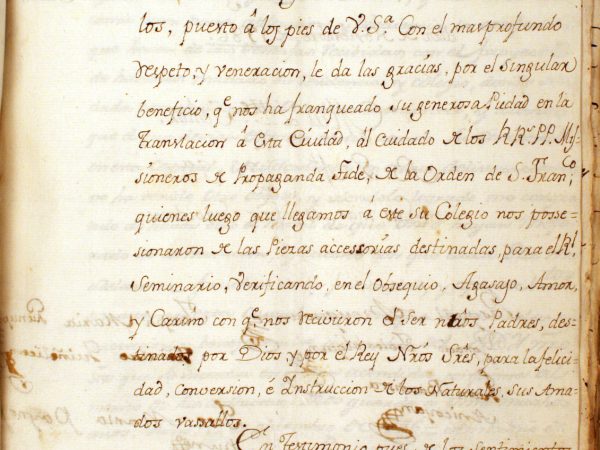 los, puesto á los pies de V.Sª. Con el mas profundo
respeto, y veneracion, le da las gracias, por el Singular
beneficio, qᵉ. nos ha franqueado su generosa Piedad en la
Translacion á Esta Ciudad, al Cuidado de los RRˢ. PP. Mi-
sioneros de Propaganda Fide, de la Orden de S. Franᶜᵒ,
quienes luego que llegamos á este su Colegio nos posse-
sionaron de las Piezas accessorias destinadas, para el Rˡ.
Seminario, Verificando, en el Obsequio, Agasajo, Amor,
y Cariño con qᵉ. nos recivieron el Ser nros Padres, des-
tinados por Dios y por el Rey Nrós Srēs, para la felici-
dad, Conversion, é Instruccion de los Naturales, sus Ama-
dos vasallos.
En Testimonio pues de los Sentimientos